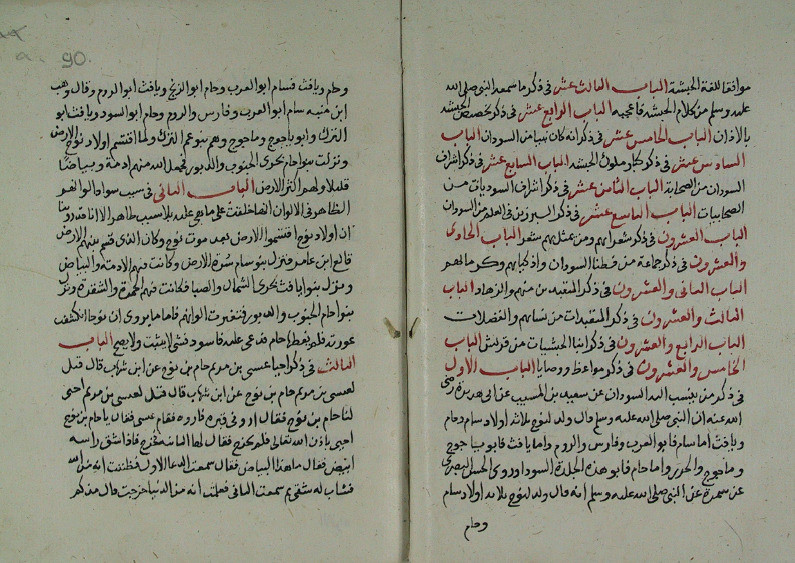 موافقا للغة الحبشة الباب الثالث عشر في ذكر ما سمعه النبي صلى الله
عليه وسلم من كلام الحبشه فاعجبه الباب الرابع عشر في ذكر تخصيص الحبشه
بالاذان الباب الخامس عشر في ذكر انه كان نبيا من السودان الباب
السادس عشر في ذكر كبار ملوك الحبشه الباب السابع عشر في ذكر اشراف
السودان من الصحابة الباب الثامن عشر في ذكر اشراف السوديات من
الصحابيات الباب التاسع عشر في ذكر المبرزين في العلم من السودان
الباب العشرون في ذكر شعرائهم ومن تمثل بهم بشعر الباب الحادي
والعشرون في ذكر جماعة من فطنا السودان واذكيائهم وكرمائهم
الباب الثاني والعشرون في ذكر المتعبدين منهم والزهاد الباب
الثالث والعشرون في ذكر المتعبدات من نسائهم والفضلات
الباب الرابع والعشرون في ذكر ابنا الحبشيات من قريش الباب
الخامس والعشرون في ذكر مواعظ ووصايا الباب الاول
في ذكر من ينسب اليه السودان عن سعيد بن المسيب عن ابي هريرة رضي
الله عنه ان النبي صلى الله عليه وسلم قال ولد لنوح ثلاثه اولاد سام وحام
ويافث اما سام فابو العرب وفارس والروم واما يافث فابو ياجوج
وماجوج والخزر واما حام فابو هذه الجلدة السودا وروى الحسن البصري
عن سمرة عن النبي صلى الله عليه وسلم انه قال ولد لنوح ثلاثه اولاد سام
وحام
90
وحام ويافث فسام ابو العرب وحام ابو الزنج ويافث ابو الروم وقال وهب
ابن منبه سام ابو العرب وفارس والروم وحام ابو السود ويافث ابو
الترك وابو ياجوج وماجوج وهم بنو عم الترك ولما اقتسم اولاد نوح الارض
ونزلت بنوا حام مجرى الجنوب والدبور فجعل الله منهم ادمة وبياضا
قليلا ولهم اكثر الارض الباب الثاني في سبب سواد الوانهم
الظاهر في الالوان انها خلقت على ما هي عليه بلا سبب ظاهر الا انا قد روينا
ان اولاد نوح اقتسموا الارض بعد موت نوح وكان الذي قسم بينهم الارض
فالع ابن عابر فنزل بنو سام سرة الارض وكانت فيهم الادمة والبياض
ونزل بنوا يافث مجرى الشمال والصبا فكانت فيهم الحمرة والشقرة ونزل
بنوا حام الجنوب والدبور فتغيرت الوانهم فاما ما يروى ان نوحا انكشفت
عورته فلم يغطها حام فدعى عليه فاسود فشي لا يثبت ولا يصح الباب
الثالث في ذكر احيا عيسى بن مريم حام بن نوح عن ابن شهاب قال قيل
لعيسى بن مريم حام بن نوح عن ابن شهاب قال قيل لعيسى بن مريم احيى
لنا حام بن نوح فقال اروني قبره فاروه فقام عيسى فقال يا حام بن نوح
احيى باذن الله تعالى فلم يخرج فقال لها الثانيه فخرج فاذا شق راسه
ابيض فقال ما هذا البياض فقال سمعت الدعا الاول فظننت انه من الله
فشاب له شقي ثم سمعت الثاني فعلمت انه من الدنيا فخرجت قال مذ كم